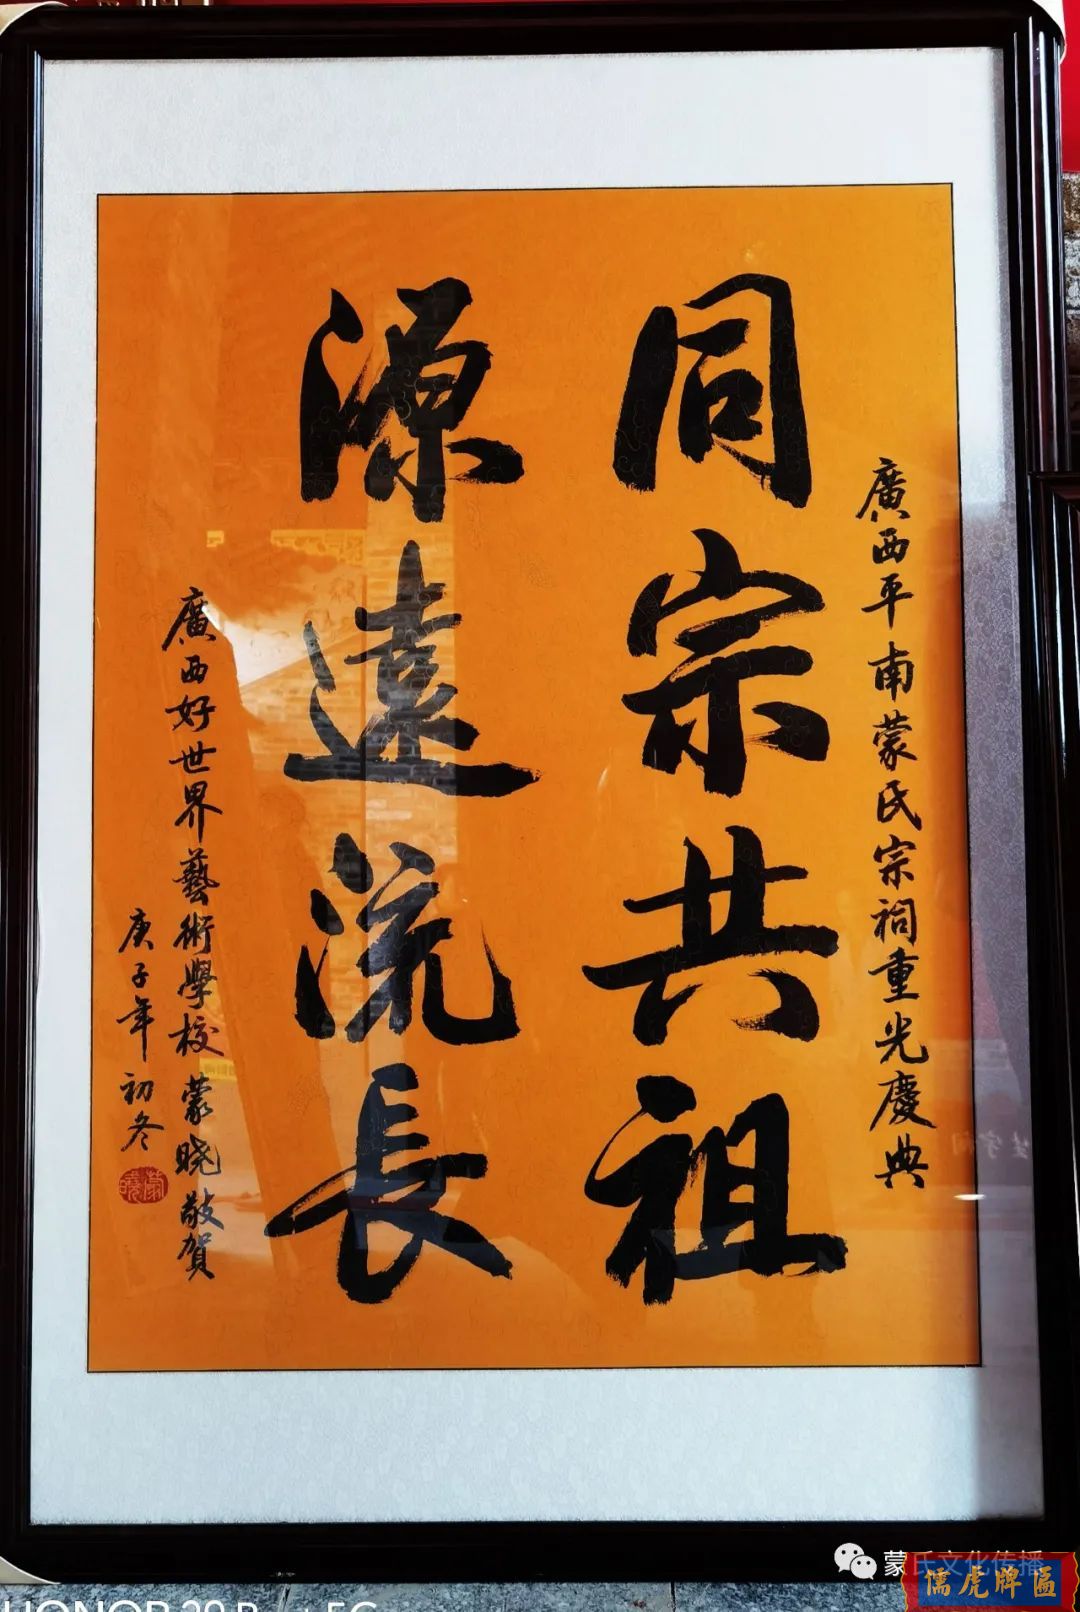 廣西平南蒙氏宗祠重光慶典
同宗共祖
源遠流長
廣西好世界藝術學校蒙晓敬賀
庚子年初冬
蒙曉
蒙氏文化传播
儒虎牌匾